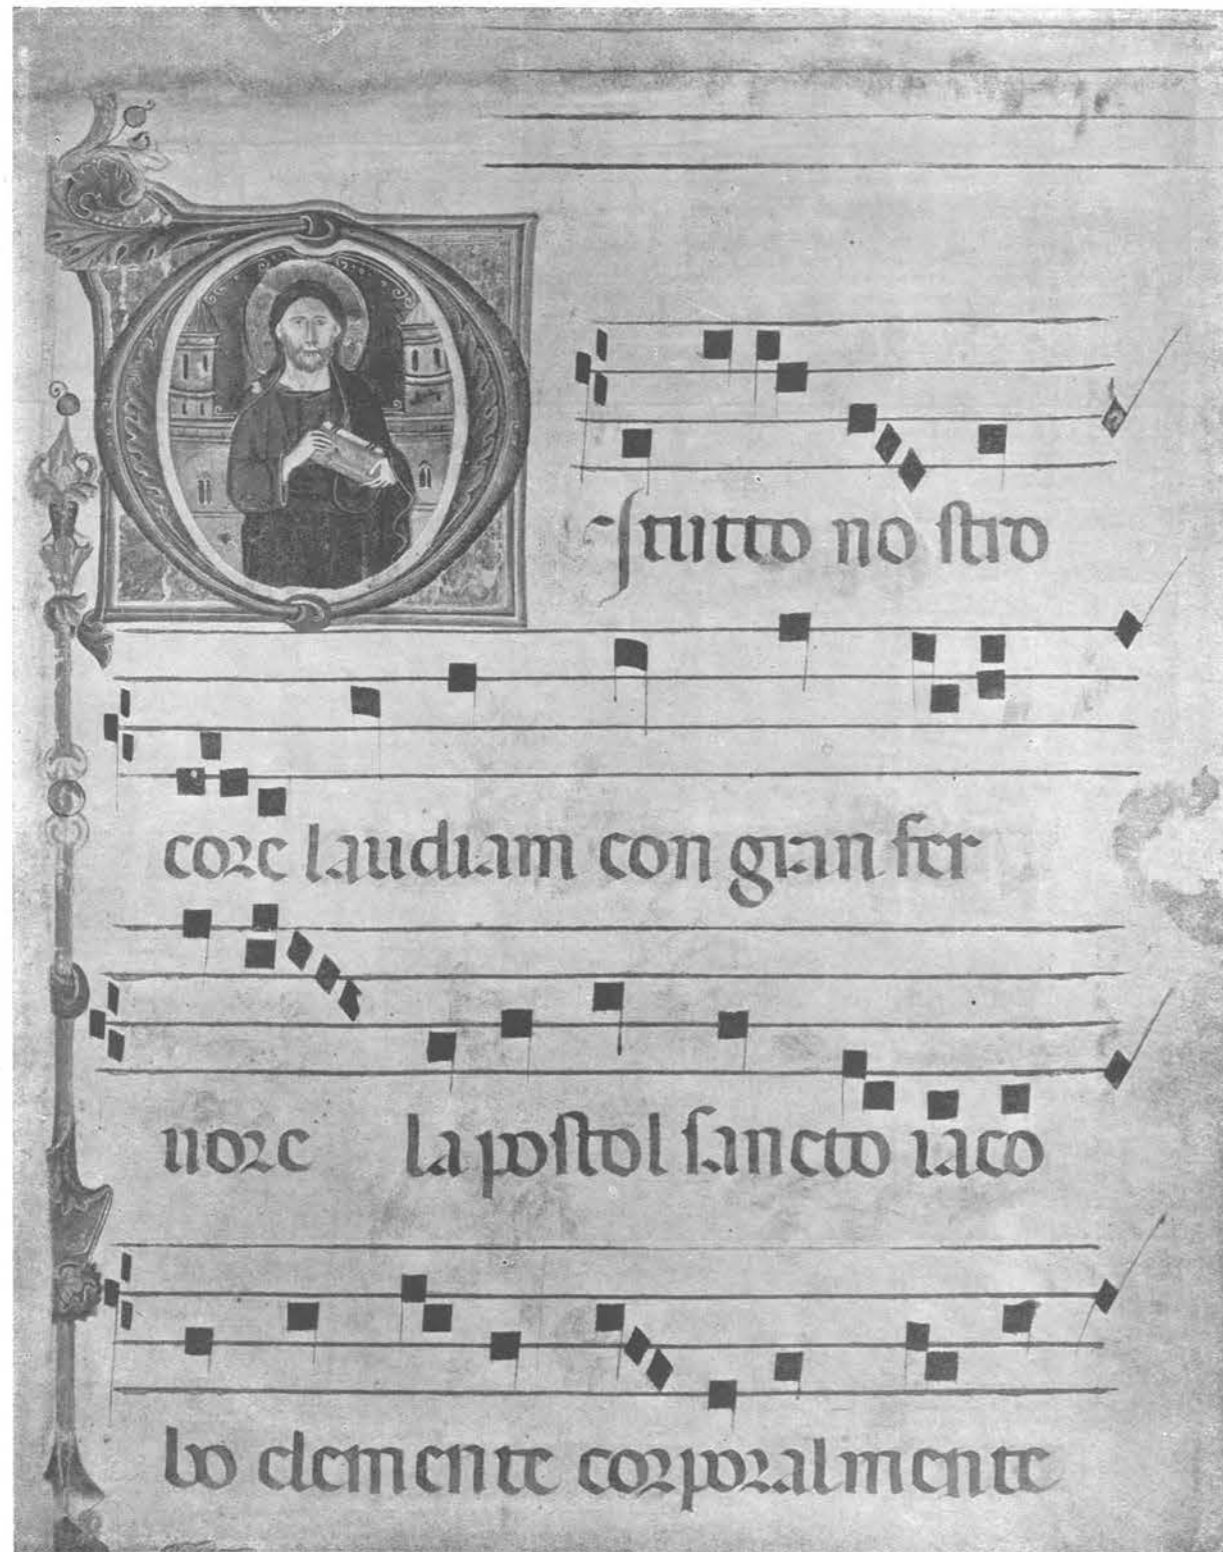 DI tutto no stro
core laudiam con gran fer
uore la postol sancto iaco
bo clemente corporalmente